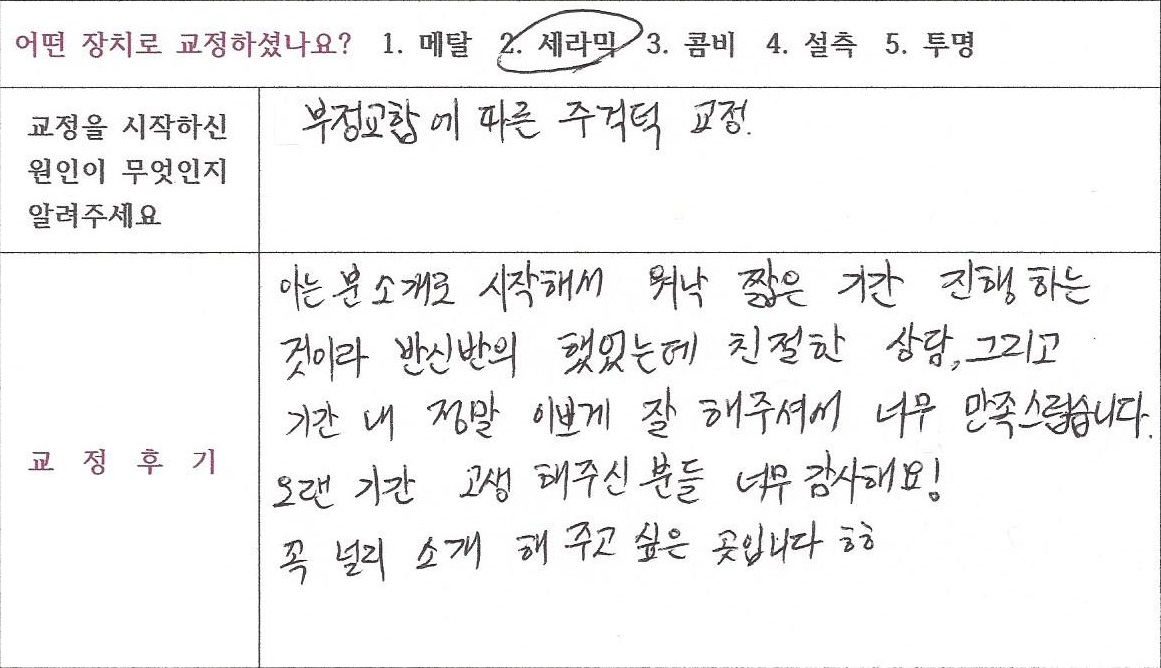 어떤 장치로 교정하셨나요? 1. 메탈 2. 세라믹 3. 콤비 4. 설측 5. 투명
교정을 시작하신
원인이 무엇인지
알려주세요
부정교합에 따른 주걱턱 교정.
교 정 후 기
아는분소개로 시작해서 워낙 짧은 기간 진행하는
것이라 반신반의 했었는데 친절한 상담, 그리고
기간 내 정말 이쁘게 잘 해주셔서 너무 만족스럽습니다.
오랜 기간 고생 해주신 분들 너무 감사해요!
꼭 널리 소개 해 주고 싶은 곳입니다 ㅎㅎ